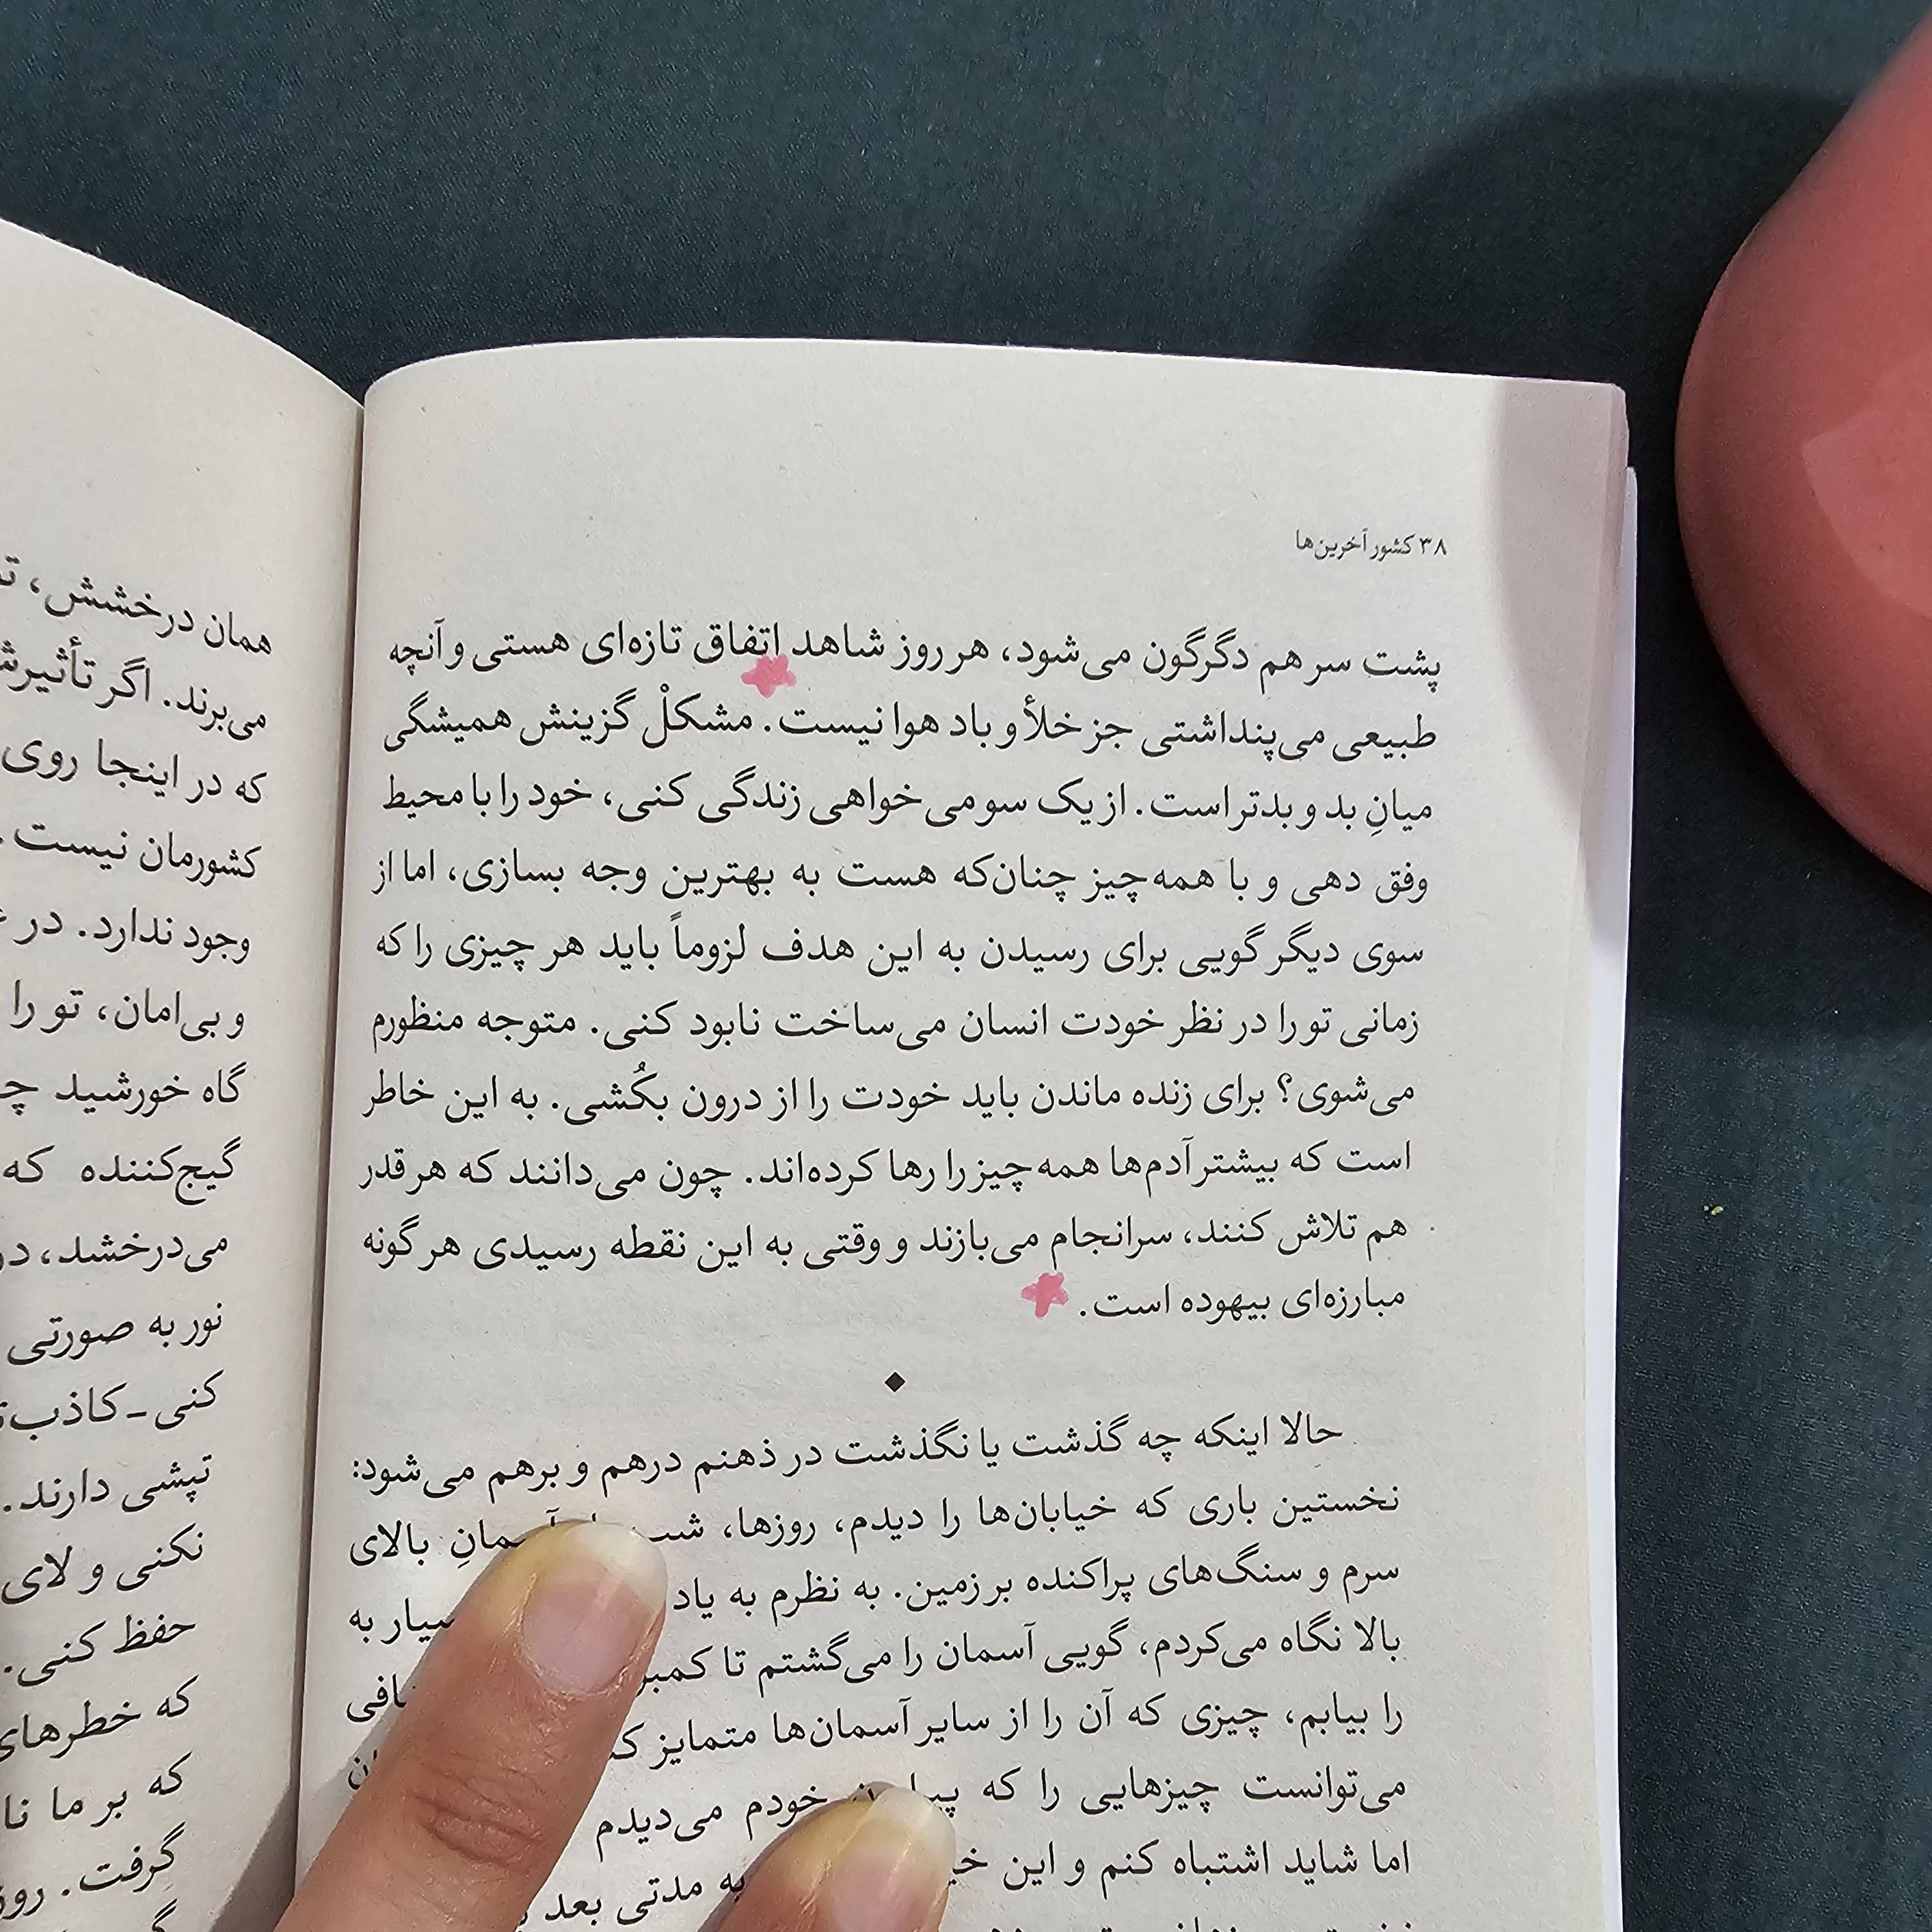 ۳۸ کشور آخرین‌ها
پشت سر هم دگرگون می‌شود، هر روز شاهد اتفاق تازه‌ای هستی و آنچه
طبیعی می‌پنداشتی جز خلأ و باد هوا نیست. مشکلْ گزینش همیشگی
میانِ بد و بدتر است. از یک سو می‌خواهی زندگی کنی، خود را با محیط
وفق دهی و با همه‌چیز چنان‌که هست به بهترین وجه بسازی، اما از
سوی دیگر گویی برای رسیدن به این هدف لزوماً باید هر چیزی را که
زمانی تو را در نظر خودت انسان می‌ساخت نابود کنی. متوجه منظورم
می‌شوی؟ برای زنده ماندن باید خودت را از درون بکُشی. به این خاطر
است که بیشتر آدم‌ها همه‌چیز را رها کرده‌اند. چون می‌دانند که هر قدر
هم تلاش کنند، سرانجام می‌بازند و وقتی به این نقطه رسیدی هر گونه
مبارزه‌ای بیهوده است.
حالا اینکه چه گذشت یا نگذشت در ذهنم درهم و برهم می‌شود:
نخستین باری که خیابان‌ها را دیدم، روزها، بالای
سرم و سنگ‌های پراکنده بر زمین. به نظرم به یاد به
بالا نگاه می‌کردم، گویی آسمان را می‌گشتم تا
را بیابم، چیزی که آن را از سایر آسمان‌ها متمایز
می‌توانست چیزهایی را که خودم می‌دیدم
اما شاید اشتباه کنم و این به مدتی بعد
همان درخشش،
می‌برند. اگر
که در اینجا روی
کشورمان نیست.
وجود ندارد. در
و بی‌امان، تو را
گاه خورشید
گیج‌کننده که
می‌درخشد،
نور به صورتی
کنی-
تپشی دارند.
نکنی و لای
حفظ کنی.
که خطرهای
که بر ما
گرفت.